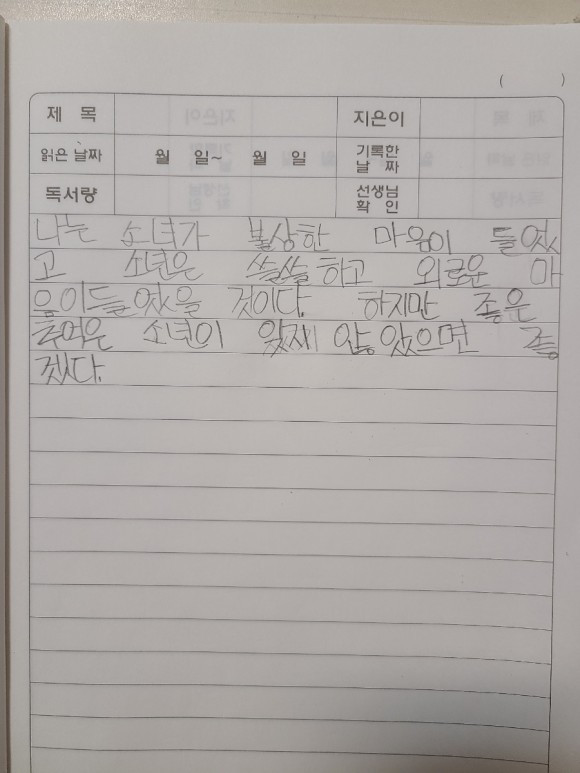 (          )
제 목 지은이
읽은 날짜 월 일~ 월 일 기록한 날 짜
독서량 선생님 확 인
나는 소녀가 불상한 마음이 들었
고 소년은 쓸쓸하고 외로운 마
음이들었을 것이다. 하지만 좋은
추억은 소년이 잊지 않았으면 좋
겠다.